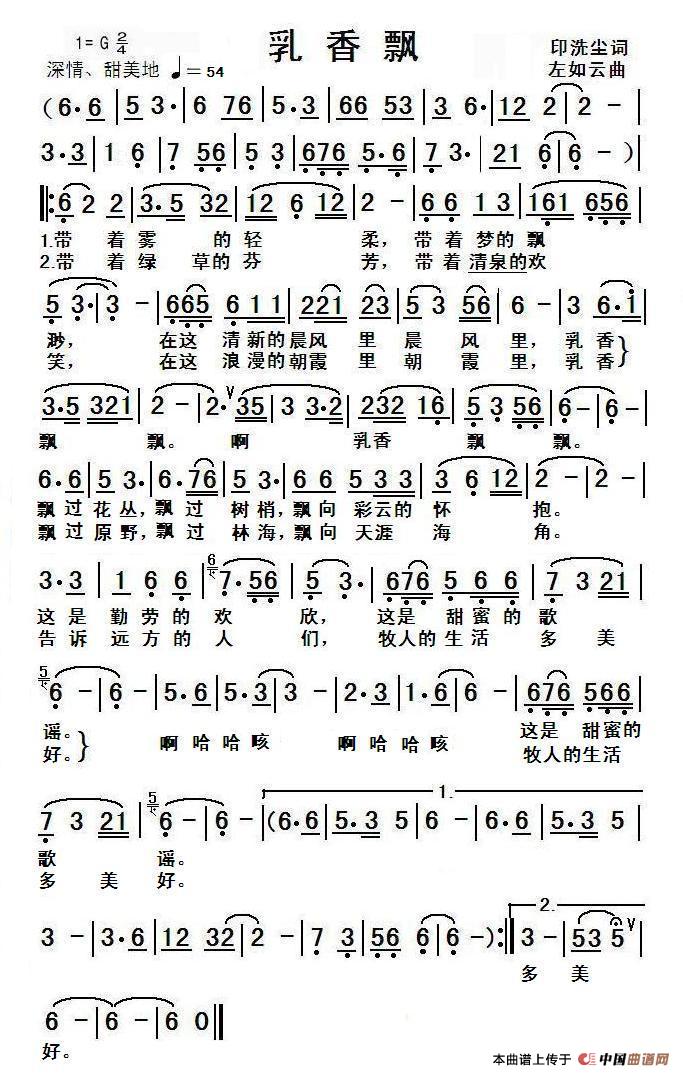 乳香飘
1=G 2/4
印洗尘词
深情、甜美地 ♩=54
左如云曲
(6·6 | 5 3· | 6 76 | 5·3 | 66 53 | 3 6· | 12 2 | 2 – |
3·3 | 1 6 | 7 56 | 5 3 | 676 5·6 | 7 3· | 21 6 | 6 – )
‖: 6 2 2 | 3·5 32 | 12 6 12 | 2 – | 6 6 1 3 | 161 656 |
1.带 着 雾 的 轻 柔, 带 着 梦 的 飘
2.带 着 绿 草 的 芬 芳, 带 着 清泉的欢
5 3· | 3 – | 665 6 1 1 | 221 23 | 5 3 56 | 6 – | 3 6·i |
渺, 在这 清新的晨风 里 晨 风 里, 乳香
笑, 在这 浪漫的朝霞 里 朝 霞 里, 乳香
3·5 321 | 2 – | 2· ∨ 35 | 3 3·2 | 232 16 | 5 3 56 | 6 – | 6 – |
飘 飘。 啊 乳香 飘 飘。
6·6 | 5 3· | 6·76 | 5 3· | 6 6 5 3 3 | 3 6 12 | 2 – | 2 – |
飘过 花丛,飘过 树梢,飘向 彩云的 怀 抱。
飘过 原野,飘过 林海,飘向 天涯 海 角。
3·3 | 1 6 6 | 6 7·56 | 5 3· | 676 5 6 6 | 7 3 21 |
这是 勤劳的 欢 欣, 这是 甜蜜的 歌
告诉 远方的 人 们, 牧人的生活 多 美
5 6 – | 6 – | 5·6 | 5·3 | 3 – | 2·3 | 1·6 | 6 – | 676 566 |
谣。 啊哈哈咳 啊哈哈咳 这是 甜蜜的
好。 牧人的生活
1.
7 3 21 | 5 6 – | 6 – | (6·6 | 5·3 5 | 6 – | 6·6 | 5·3 5 |
歌 谣。
多 美 好。
2.
3 – | 3·6 | 12 32 | 2 – | 7 3 | 56 6 | 6 – ) :‖ 3 – | 53 5 ∨ |
多 美
6 – | 6 – | 6 – | 6 0 ‖
好。
本曲谱上传于 中国曲谱网